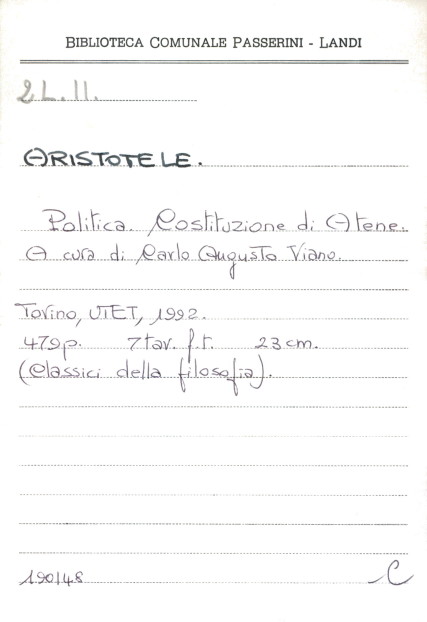 BIBLIOTECA COMUNALE PASSERINI - LANDI
2L.II.
ARISTOTELE.
Politica. Costituzione di Atene.
A cura di Carlo Augusto Viano.
Torino, UTET, 1992.
479p. 7tav. f.t. 23cm.
(Classici della filosofia).
190148 C